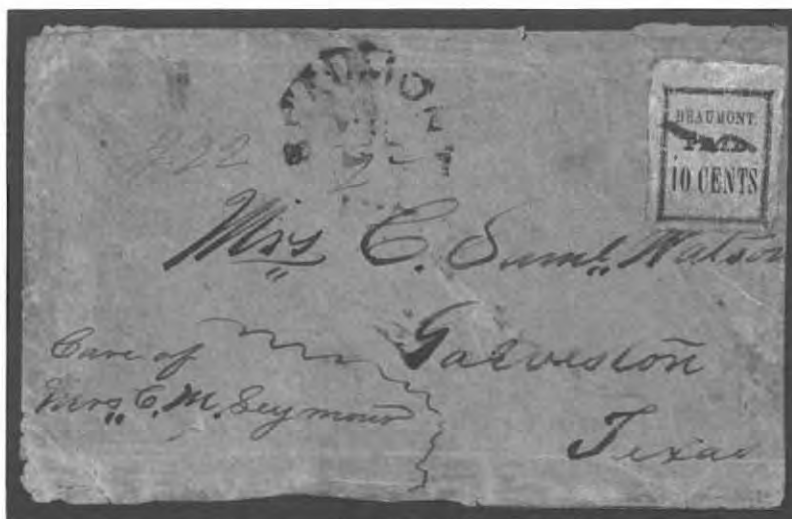 BEAUMONT.
PAID
10 CENTS
Mrs C. Saml. Watson
Galveston
Texas
Care of
Mrs. C. M. Seymour